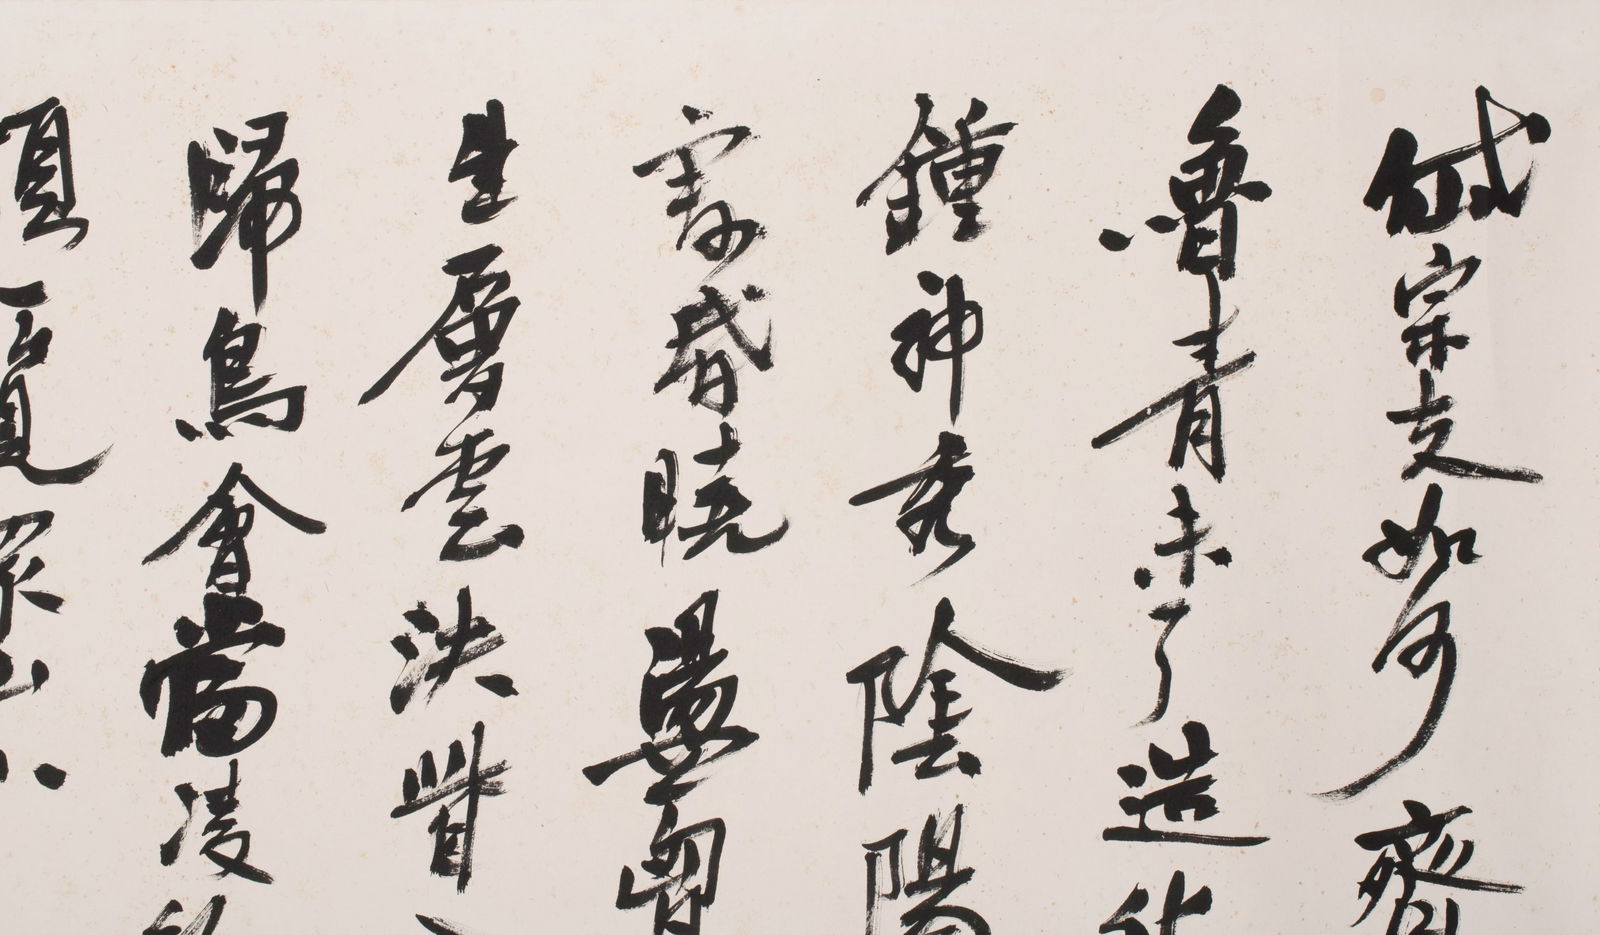 岱宗夫如何齊
魯青未了造化
鍾神秀陰陽
割昏曉盪胷
生層雲決眥
歸鳥會當凌
頂一覽眾山小